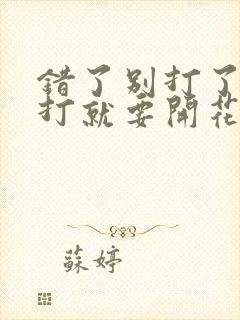 错了别打了
打就要開花
蘇婷